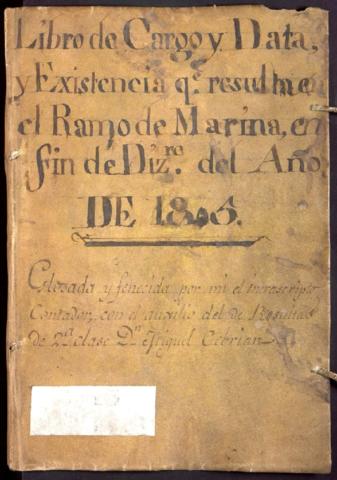 Libro de Cargo y Data,
y Existencia q.e resulta en
el Ramo de Marina, en
fin de Diz.re del Año
DE 1805.
Glosada y fenecida por mi el infrascripto
Contador, con el auxilio del de Resultas
de 2.a clase D.n Miguel Cebrian